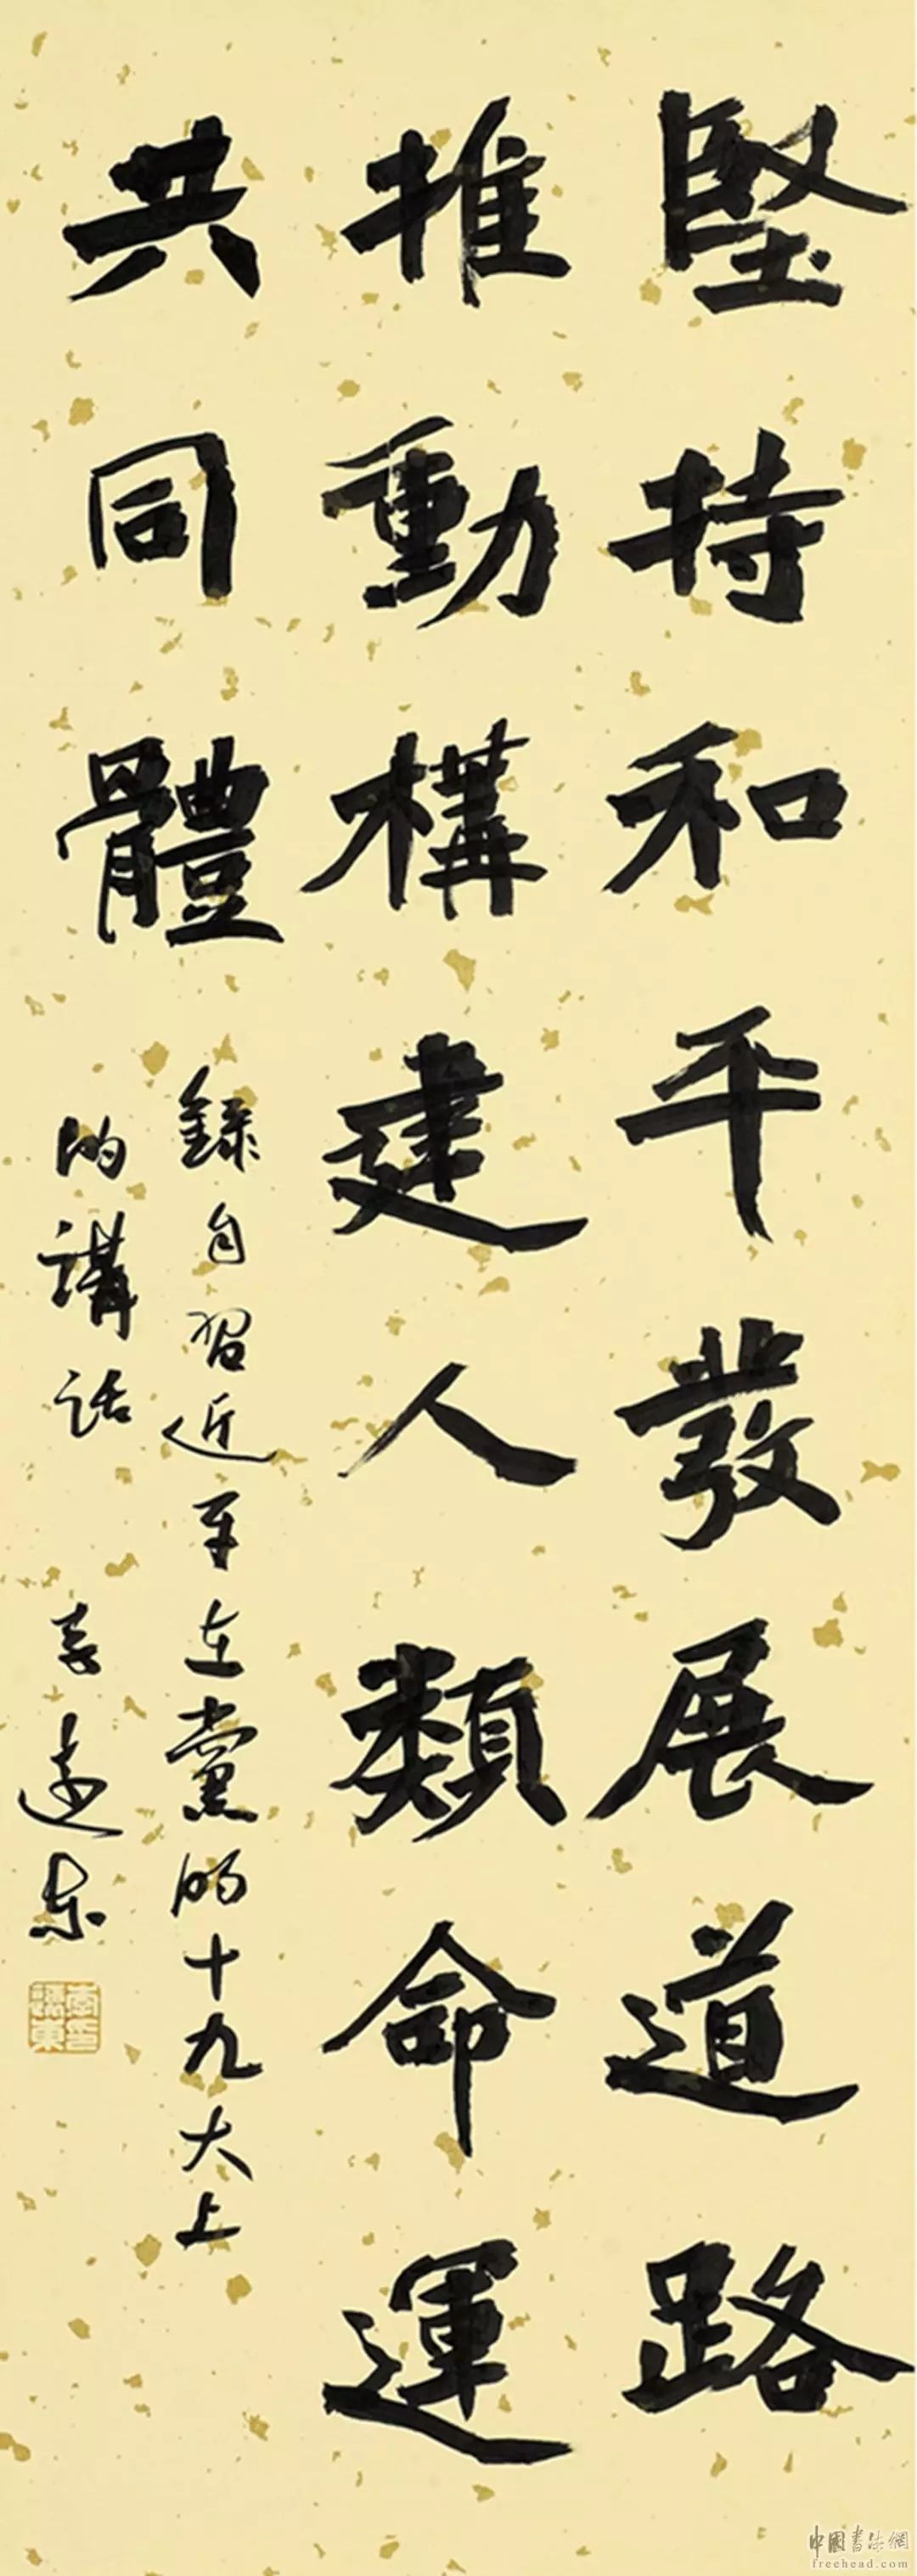 堅持和平發展道路
推動構建人類命運
共同體
錄自習近平在黨的十九大上
的講話 李遠東
中國書法網
freehead.com